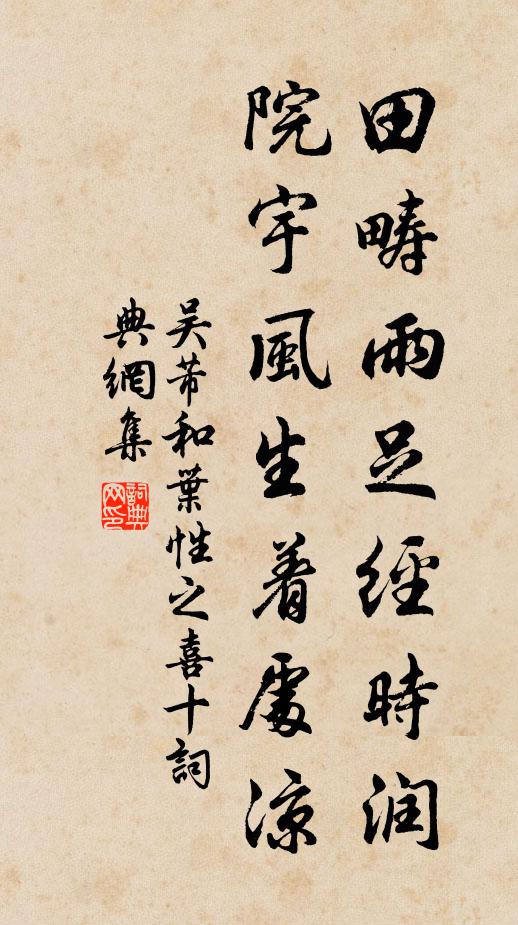 田疇雨足經時润
院宇風生着處凉
吴芾和葉性之喜十詞
典網集
詞典
网印